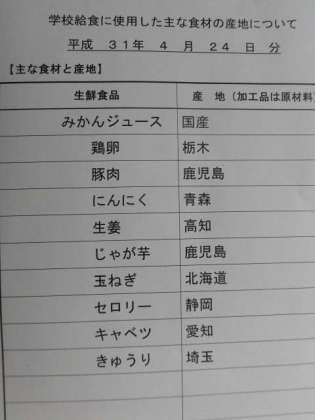 学校給食に使用した主な食材の産地について
平成 31年 4 月 24 日 分
【主な食材と産地】
生鮮食品 産 地（加工品は原材料）
みかんジュース 国産
鶏卵 栃木
豚肉 鹿児島
にんにく 青森
生姜 高知
じゃが芋 鹿児島
玉ねぎ 北海道
セロリー 静岡
キャベツ 愛知
きゅうり 埼玉